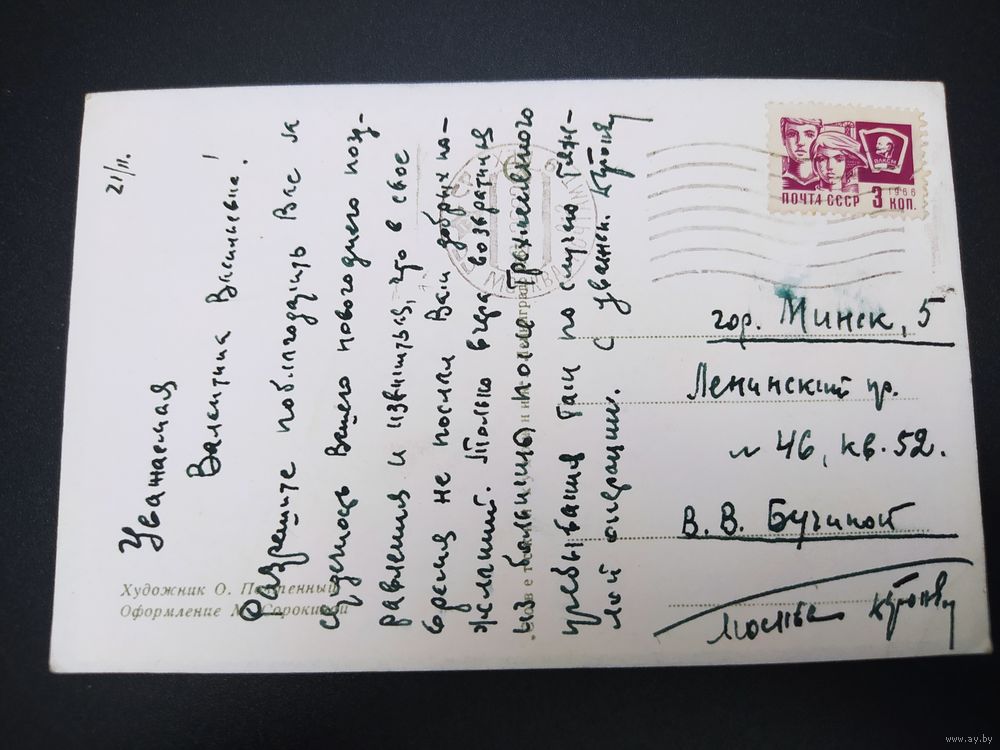 21/II.
Уважаемая
Валентина Васильевна!
Разрешите поблагодарить Вас и
сердечно Вашего новогоднего поз-
равления и извиниться, что в свое
время не послал Вам добрых по-
желаний. Только вчера возвратился
из больницы после трехмесячного
пребывания там по случаю тяже-
лой операции. С уважен.
Художник О.
Оформление М. Сорокиной
МОСКВА
ВЛКСМ
1966
ПОЧТА СССР 3 КОП.
гор. Минск, 5
Ленинский пр.
46, кв. 52.
В. В. Бучиной
Москва
www.ay.by